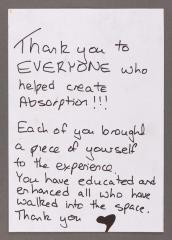 Thank you to
EVERYONE who
helped create
Absorption!!!
Each of you brought
a piece of yourself
to the experience.
You have educated and
enhanced all who have
walked into the space.
Thank you